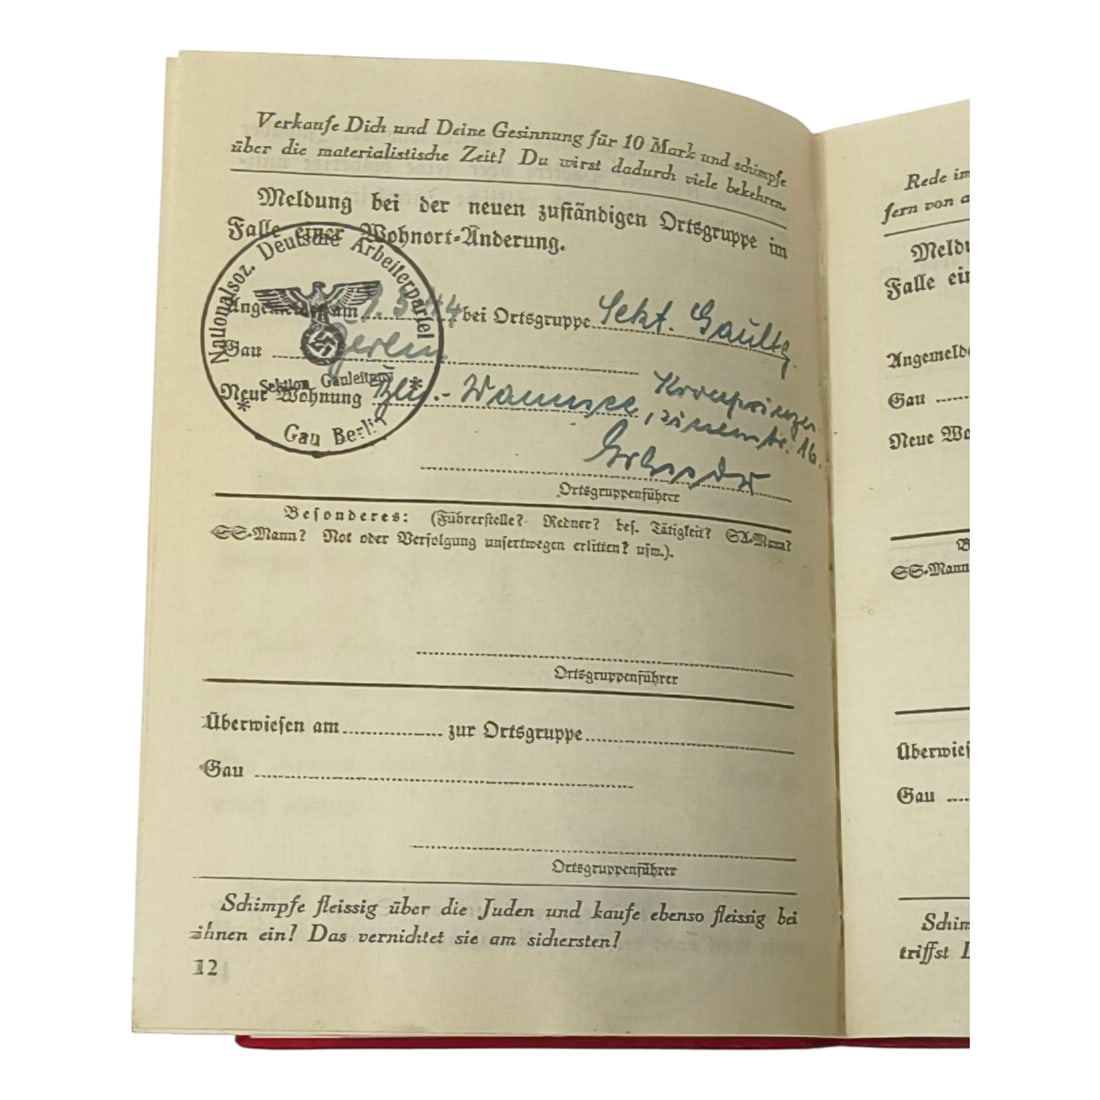 Verkaufe Dich und Deine Gesinnung für 10 Mark und schimpfe
über die materialistische Zeit! Du wirst dadurch viele bekehren.
Meldung bei der neuen zuständigen Ortsgruppe im
Falle einer Wohnort-Änderung.
Angemeldet am 1.3.44 bei Ortsgruppe Sekt. Gaultg.
Gau Berlin
Neue Wohnung Bln.-Wannsee, Kronprinzen-
str. 16.
Ortsgruppenführer
Nationalsoz. Deutsche Arbeiterpartei
Sektion Gauleitung
* Gau Berlin *
Besonderes: (Führerstelle? Redner? bes. Tätigkeit? SA-Mann?
SS-Mann? Not oder Verfolgung unsertwegen erlitten? usw.).
Ortsgruppenführer
Überwiesen am zur Ortsgruppe
Gau
Ortsgruppenführer
Schimpfe fleissig über die Juden und kaufe ebenso fleissig bei
ihnen ein! Das vernichtet sie am sichersten!
12
Rede im
fern von a
Meldu
Falle ein
Angemelde
Gau
Neue Wo
B
SS-Mann
Überwies
Gau
Schim
triffst D